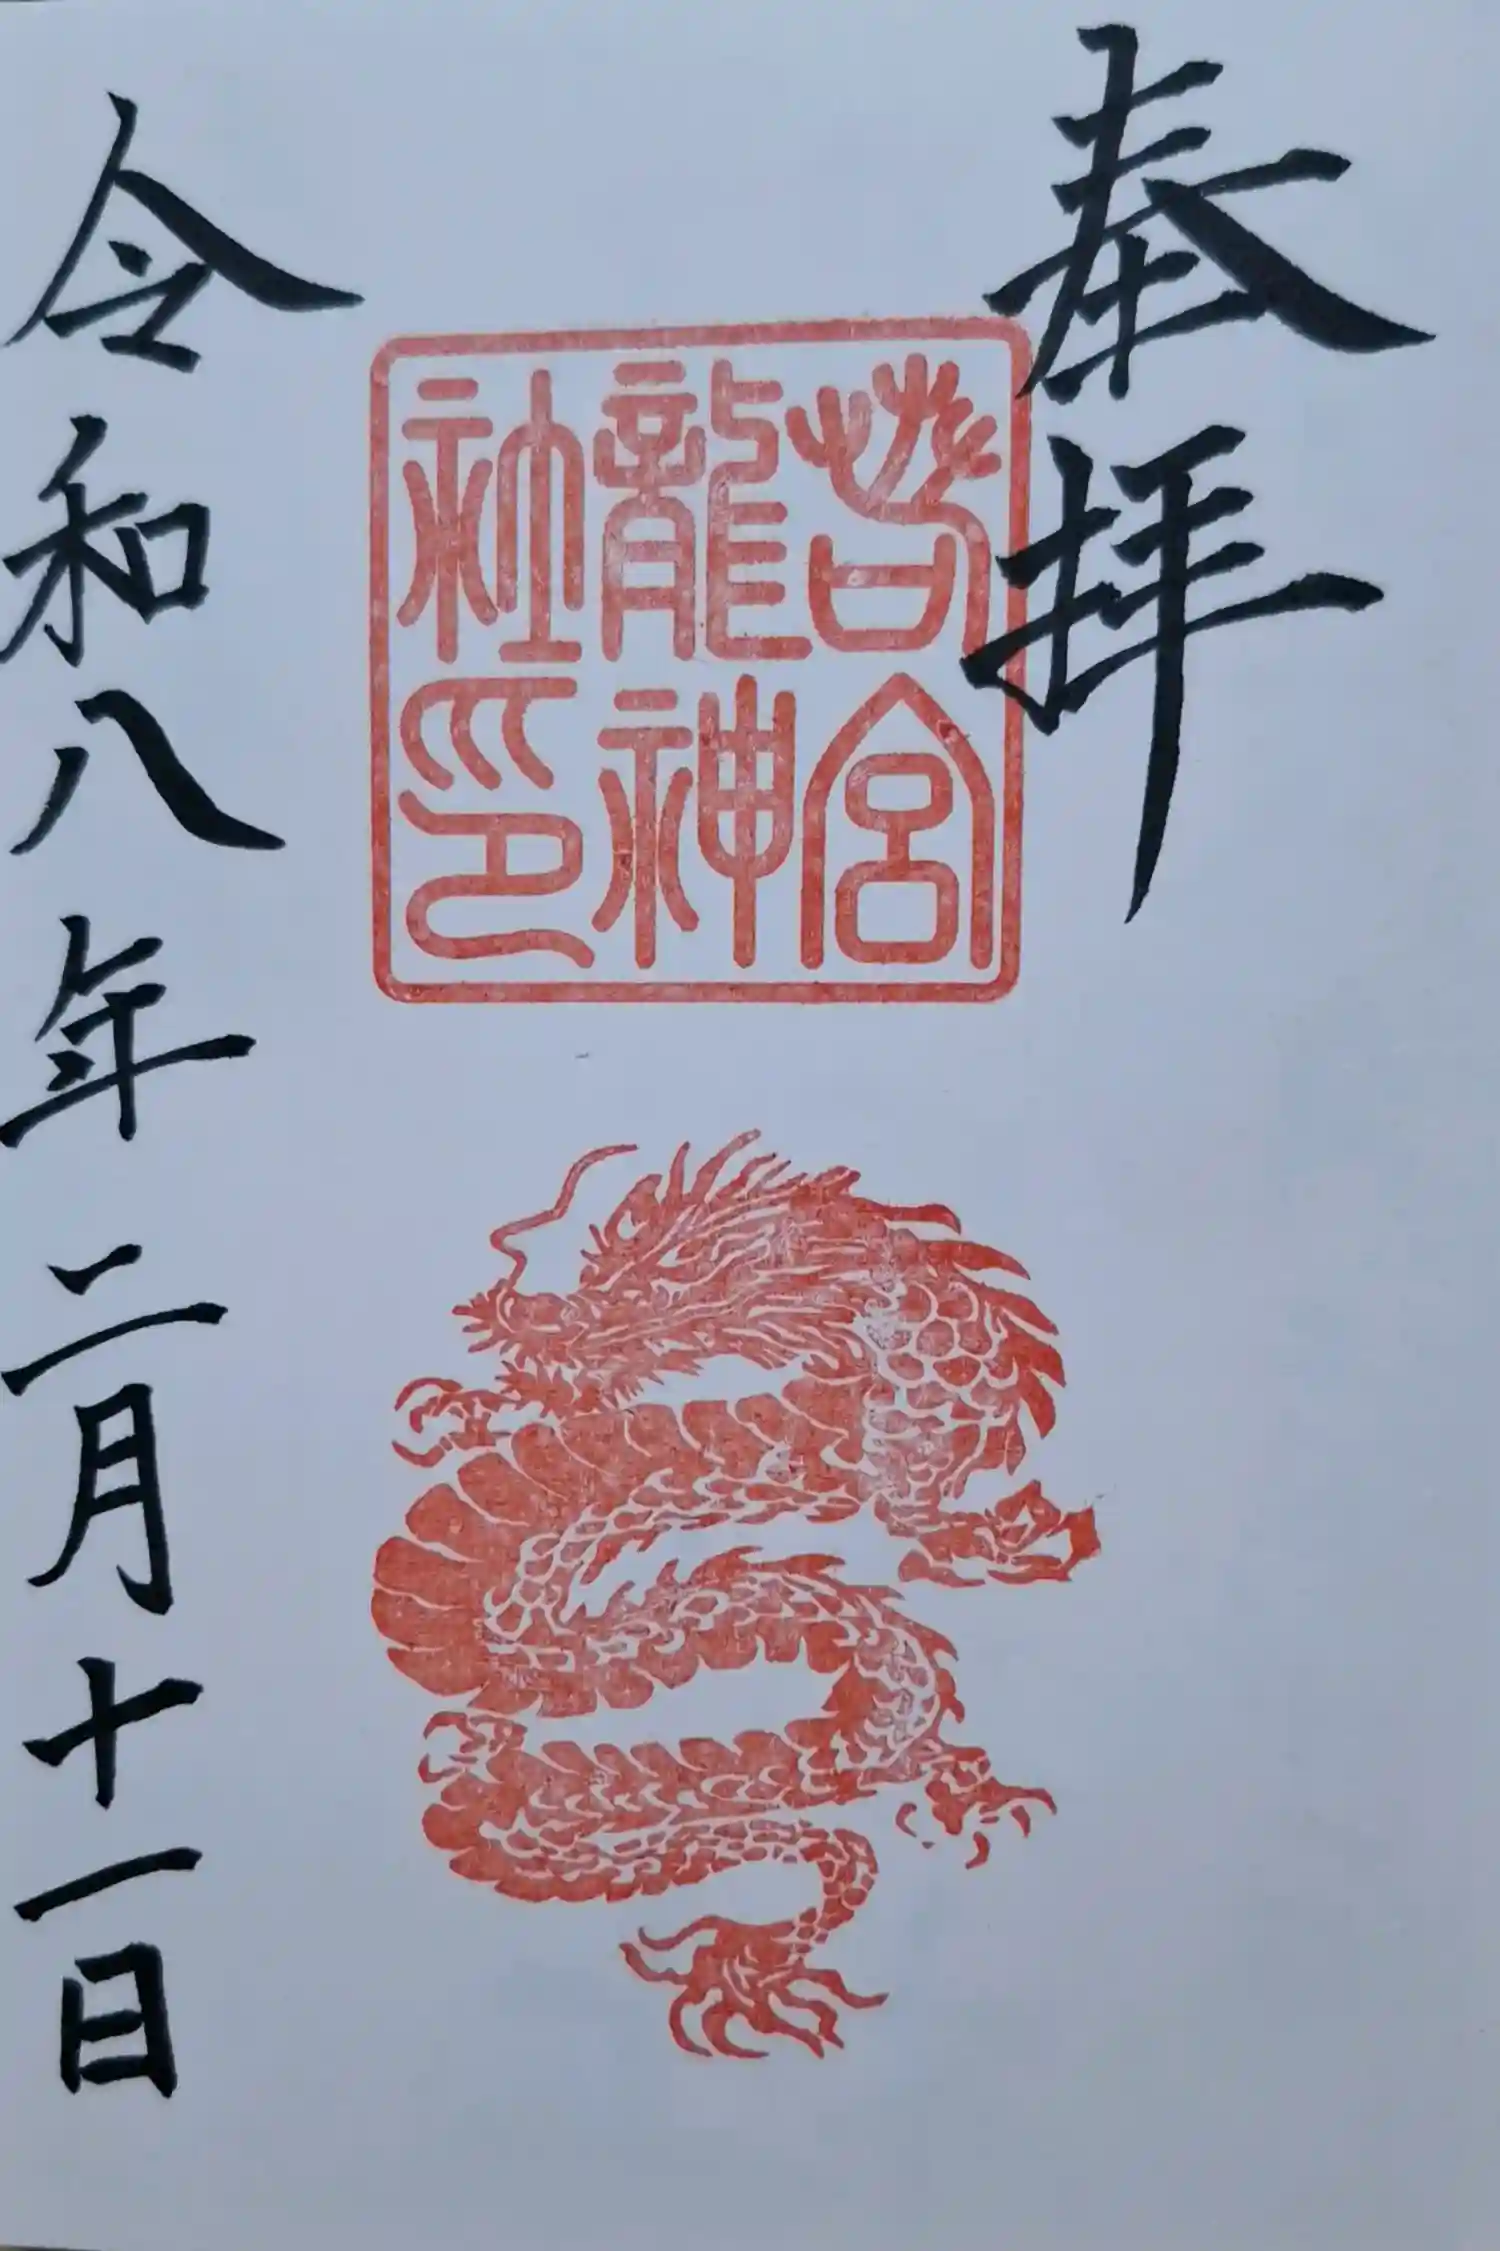 奉拝
若宮
龍神
社印
令和八年二月十一日